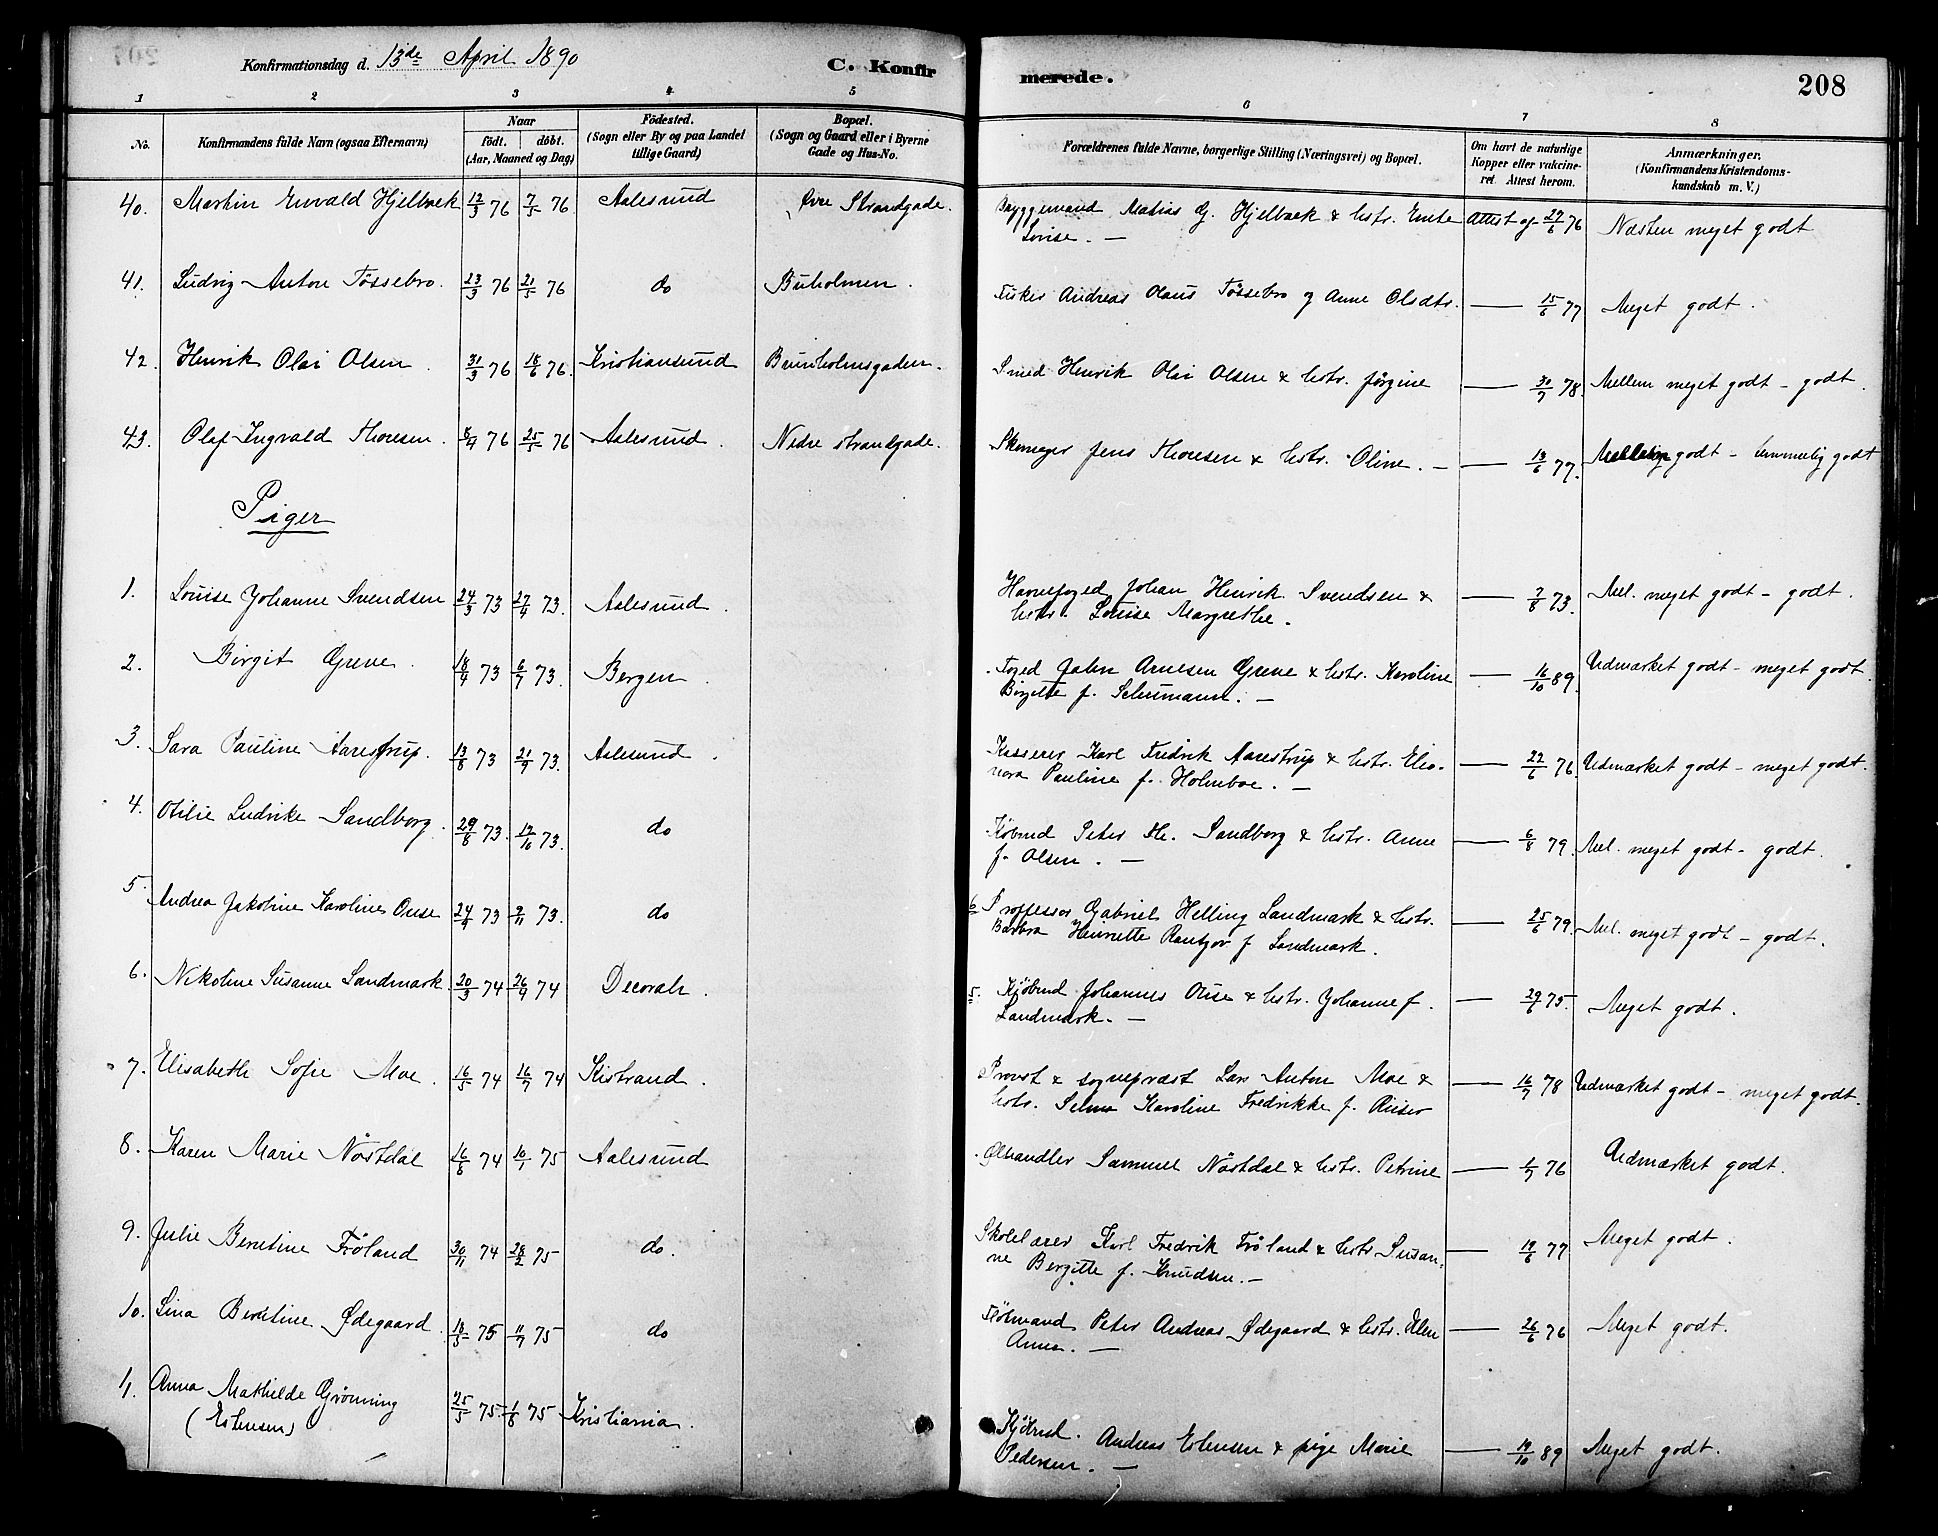 Konfirmationsdag d. 13de April 1890 C. Konfirmerede. 208
1 2 3 4 5 6 7 8
No. Konfirmandens fulde Navn (ogsaa Efternavn) Naar født. døbt. (Aar, Maaned og Dag) Fødested. (Sogn eller By og paa Landet tillige Gaard) Bopæl. (Sogn og Gaard eller i Byerne Gade og Hus-No. Forældrenes fulde Navne, borgerlige Stilling (Næringsvei) og Bopæl. Om havt de naturlige Kopper eller vakcineret. Attest herom. Anmærkninger. (Konfirmandens Kristendomskundskab m. V.)
40. Martin Envald Hjelbæk 12/3 76 7/5 76 Aalesund Øvre Strandgade. Bryggemand Matias G. Hjelbæk & hstr. Ente Lovise. — Attest af 27/6 76 Næsten meget godt
41. Ludvig Anton Tøssebro. 23/3 76 21/5 76 do Buholmen. Fisker Andreas Olaus Tøssebro og Anne Olsdtr. — 15/6 77 Meget godt.
42. Henrik Olai Olsen. 31/3 76 18/6 76. Kristiansund Bunholmsgaden. Smed Henrik Olai Olsen & hstr. Jørgine — 30/7 78. Mellem meget godt - godt.
43. Olaf Ingvald Thoresen. 8/4 76 25/5 76 Aalesund. Nedre strandgade. Skomager Jens Thoresen & hstr. Oline. — 13/6 77. godt - temmelig godt
Piger
1. Louise Johanne Svendsen 24/3 73 27/4 73. Aalesund. Havnefoged Johan Henrik Svendsen & hstr. Louise Margrethe. — 7/8 73. Mel. meget godt - godt.
2. Birgit Greve. 18/4 73 6/7 73. Bergen. Foged Jahn Arnesen Greve & hstr. Karoline Birgitte f. Schumann. — 16/10 89. Udmærket godt - meget godt.
3. Sara Pauline Aarestrup. 13/8 73 21/9 73. Aalesund. Kasserer Karl Fredrik Aarestrup & hstr. Eleonora Pauline f. Holmboe. — 22/6 76. Udmærket godt - meget godt.
4. Otilie Ludvike Sandborg. 29/8 73. 12/10 73. do Købmd Peter Th. Sandborg & hstr. Anne f. Olsen. — 6/8 79. Mel. meget godt - godt.
5. Andrea Jakobine Karoline Ouse 24/9 73 9/11 73. do 6 Proffessor Gabriel Helling Landmark & hstr. Barbra Henriette Rantzov f Landmark. — 25/6 79. Mel. meget godt - godt.
6. Nikoline Susanne Landmark. 20/3 74 26/4 74 Decorah. 5. Kjøbmd Johannes Ouse & hstr. Johanne f. Landmark. — 29/6 75. Meget godt.
7. Elisabeth Sofie Moe. 16/5 74 16/7 74 Kistrand. Provst & sognepræst Lars Anton Moe & hstr. Selma Karoline Fredrikke f. Riiser — 16/7 78 Udmærket godt - meget godt.
8. Karen Marie Nøstdal 16/8 74 10/1 75 Aalesund Ølhandler Sammuel Nøstdal & hstr. Petrine — 6/7 76 Udmærket godt.
9. Julie Berntine Frøland 30/11 74 28/2 75 do. Skolelærer Karl Fredrik Frøland & hstr. Susanne Bergitte f. Knudsen. — 19/6 77 Meget godt.
10. Lina Berntine Ødegaard. 18/5 75 11/7 75 do Følmand Peter Andreas Ødegaard & hstr. Elen Anna. — 26/6 76 Meget godt.
11. Anna Mathilde Grønning (Estensen) 25/5 75. 1/8 75 Kristiania. Kjøbmd. Andreas Estensen & pige Marie Pedersen. — 19/10 89 Meget godt.